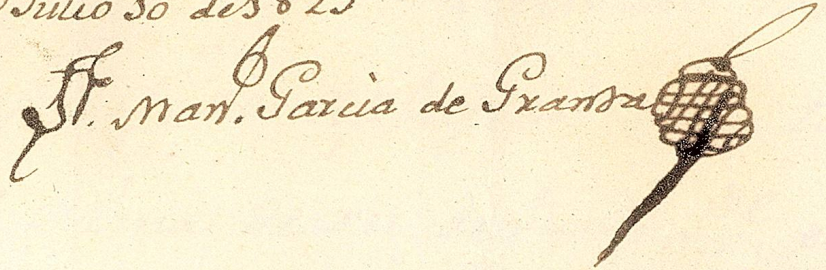 Julio 30 de 1823
Fr. Man. Garcia de Granda